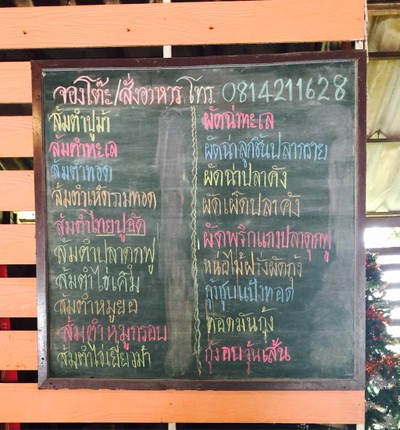 จองโต๊ะ/สั่งอาหาร โทร. 0814211628
ส้มตำปูม้า
ส้มตำทะเล
ส้มตำทอด
ส้มตำเห็ดรวมทอด
ส้มตำไทยปูอัด
ส้มตำปลาดุกฟู
ส้มตำไข่เค็ม
ส้มตำหมูยอ
ส้มตำหมูกรอบ
ส้มตำไข่เยี่ยวม้า
ผัดฉ่าทะเล
ผัดฉ่าลูกชิ้นปลากราย
ผัดฉ่าปลาคัง
ผัดเผ็ดปลาคัง
ผัดพริกแกงปลาดุกฟู
หน่อไม้ฝรั่งผัดกุ้ง
กุ้งชุบแป้งทอด
ทอดมันกุ้ง
กุ้งอบวุ้นเส้น